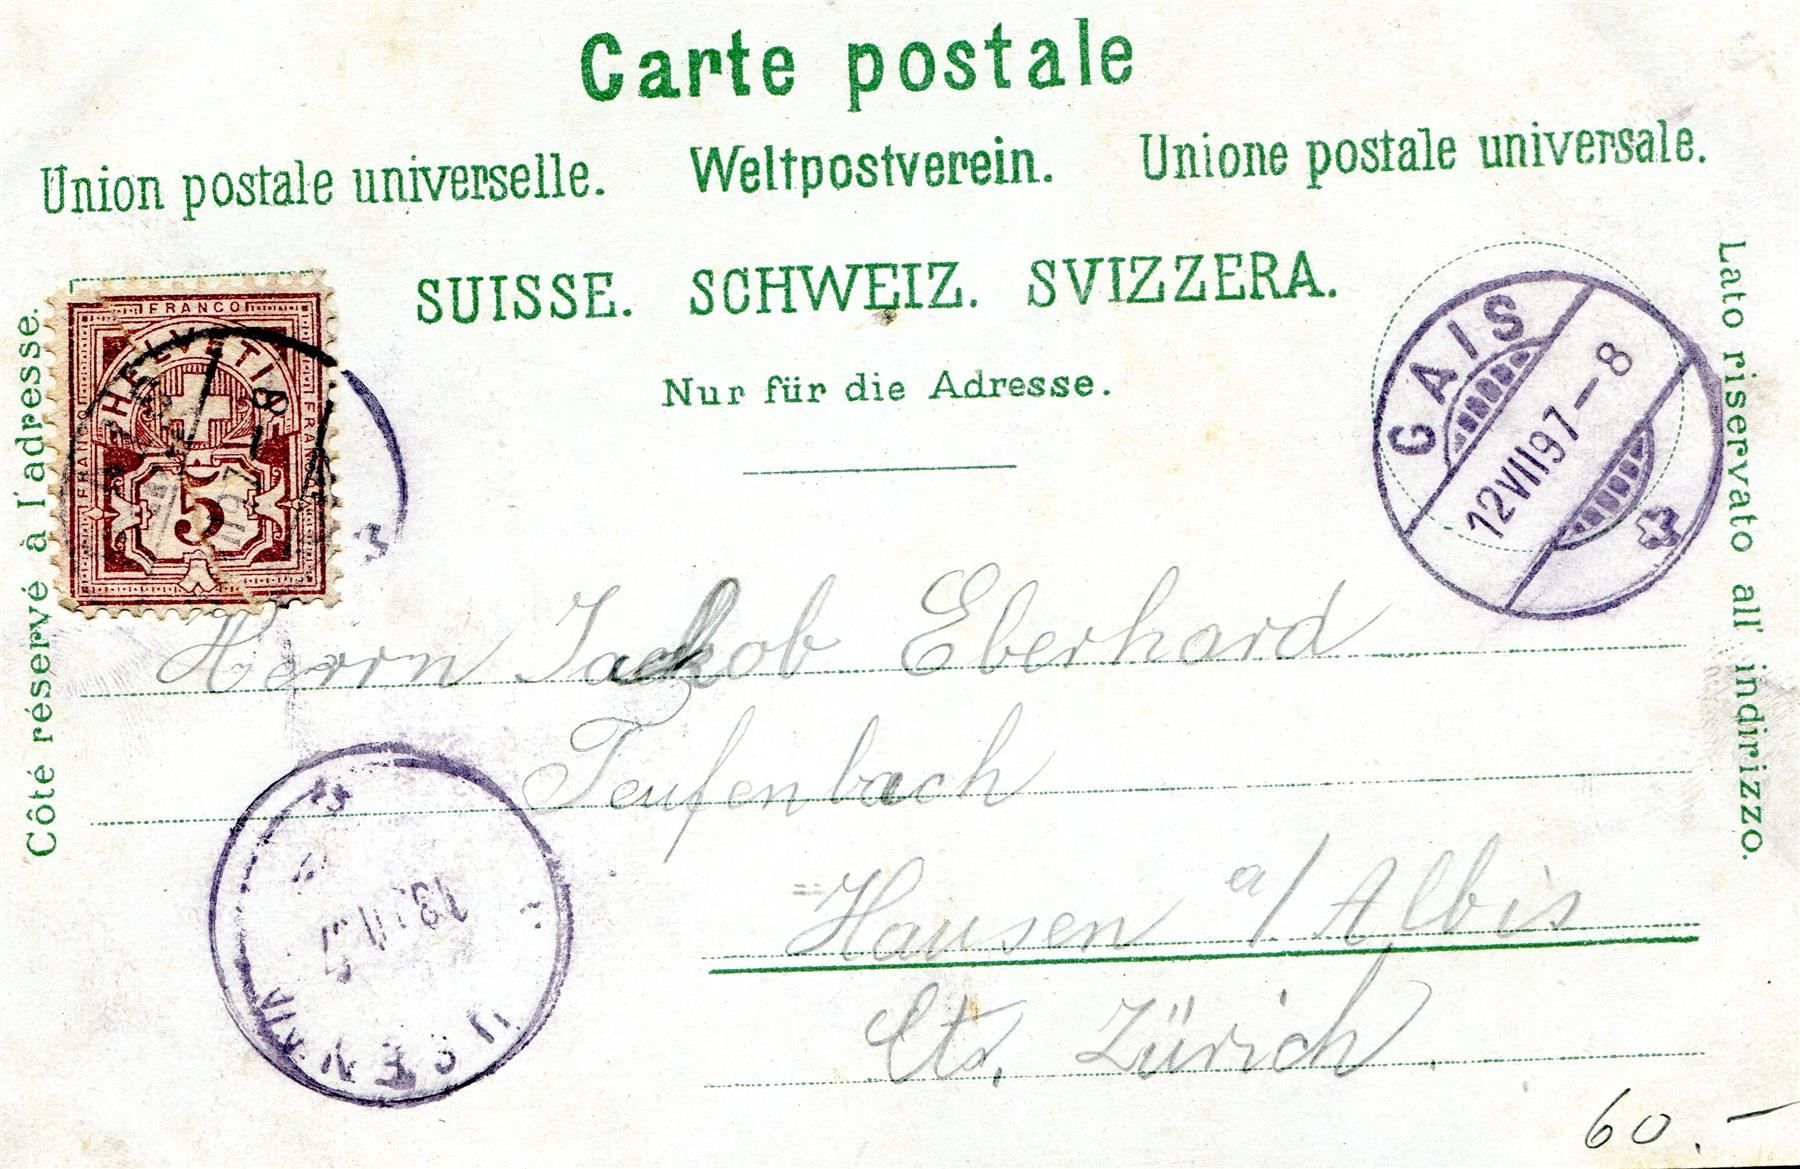 Carte postale
Union postale universelle. Weltpostverein. Unione postale universale.
SUISSE. SCHWEIZ. SVIZZERA.
Nur für die Adresse.
Côté réservé à l'adresse.
Lato riservato all' indirizzo.
FRANCO
HELVETIA
FRANCO
FRANCO
5
GAIS
12 VII 97 – 8
Herrn Jackob Eberhard
Teufenbach
Hausen a/Albis
Cts. Zürich.
13. VII 97
60.–